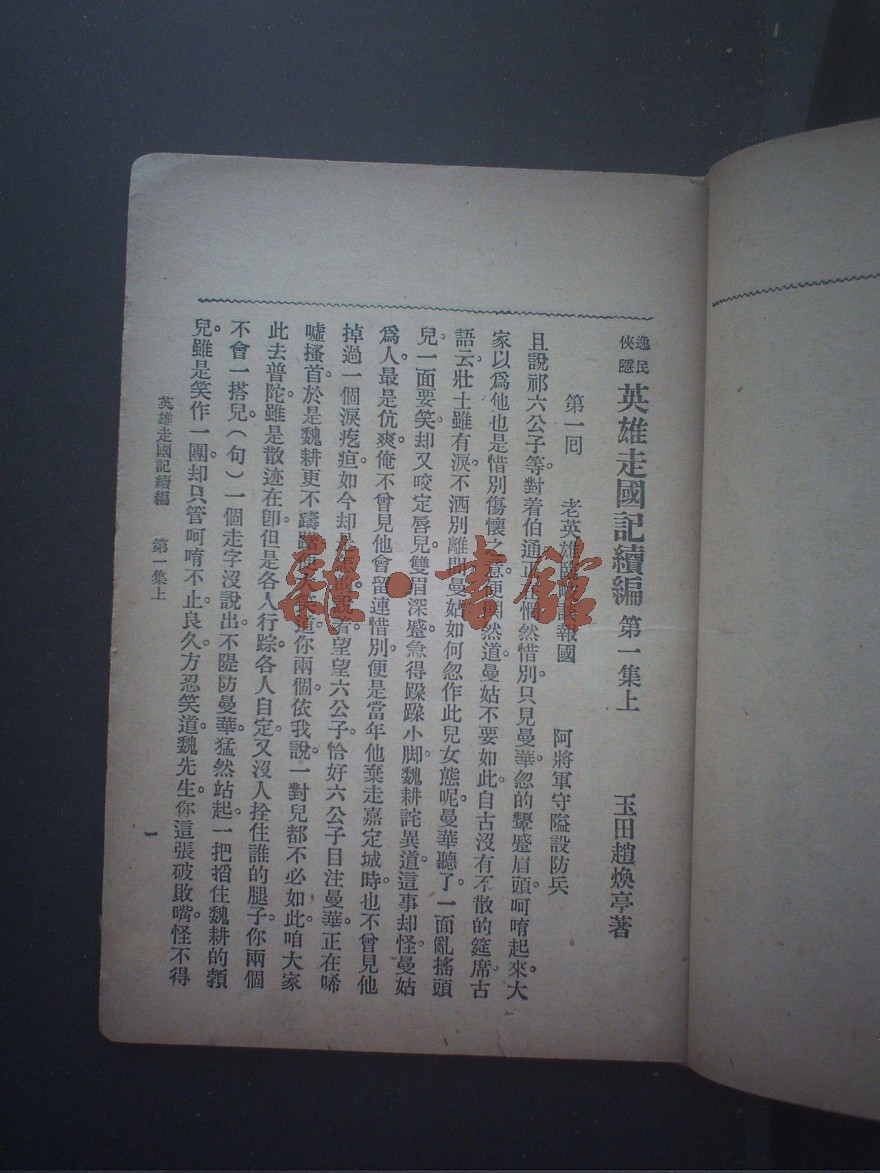 逸民
俠隱
英雄走國記續編 第一集上
玉田趙煥亭著
第一回 老英雄 報國 阿將軍守隘設防兵
且說祁六公子等對着伯通正 悵然惜別。只見曼華。忽的顰蹙眉頭呵唷起來。大
家以爲他也是惜別傷懷之意。便 然道曼姑不要如此。自古沒有不散的筵席。古
語云。壯士雖有淚。不洒別離間。曼姑如何忽作此兒女態呢。曼華聽了。一面亂搖頭
兒。一面要笑。却又咬定唇兒。雙眉深蹙。急得跺跺小脚。魏耕詫異道。這事却怪。曼姑
爲人。最是伉爽。俺不曾見他會留連惜別。便是當年他棄走嘉定城時。也不曾見他
掉過一個淚疙疸。如今却是 說着望望六公子。恰好六公子目注曼華。正在唏
噓搔首。於是魏耕更不躊躇。 大笑道。你兩個依我說。一對兒都不必如此。咱大家
此去普陀。雖是散迹在卽。但是各人行踪。各人自定。又沒人拴住誰的腿子。你兩個
不會一搭兒(句)一個走字沒說出。不隄防曼華猛然站起。一把搯住魏耕的顙
兒。雖是笑作一團。却只管呵唷不止。良久方忍笑道。魏先生。你這張破敗嘴。怪不得
英雄走國記續編 第一集上
一
雜·書館